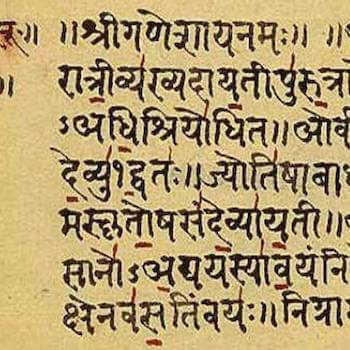 ॥श्रीगणेशायनमः॥ ॥
रात्रीव्यख्यदायतीपुरुत्रा
ऽअधिश्रियोधित॥ओर्व
देव्यु१द्वतः॥ज्योतिषाबा
मस्कृतोषसंदेव्यायती॥
सानोऽअद्ययस्यावयंनि
क्षेनवसतिंवयः॥निग्राम